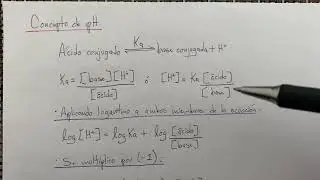 Concepto de pH.
Ácido conjugado ⇌ base conjugada + H⁺
Ka
Ka = [base][H⁺] / [ácido] ó [H⁺] = Ka [ácido] / [base]
• Aplicando logaritmo a ambos miembros de la ecuación:
log [H⁺] = log Ka + log [ácido] / [base]
• Se multiplica por (-1):